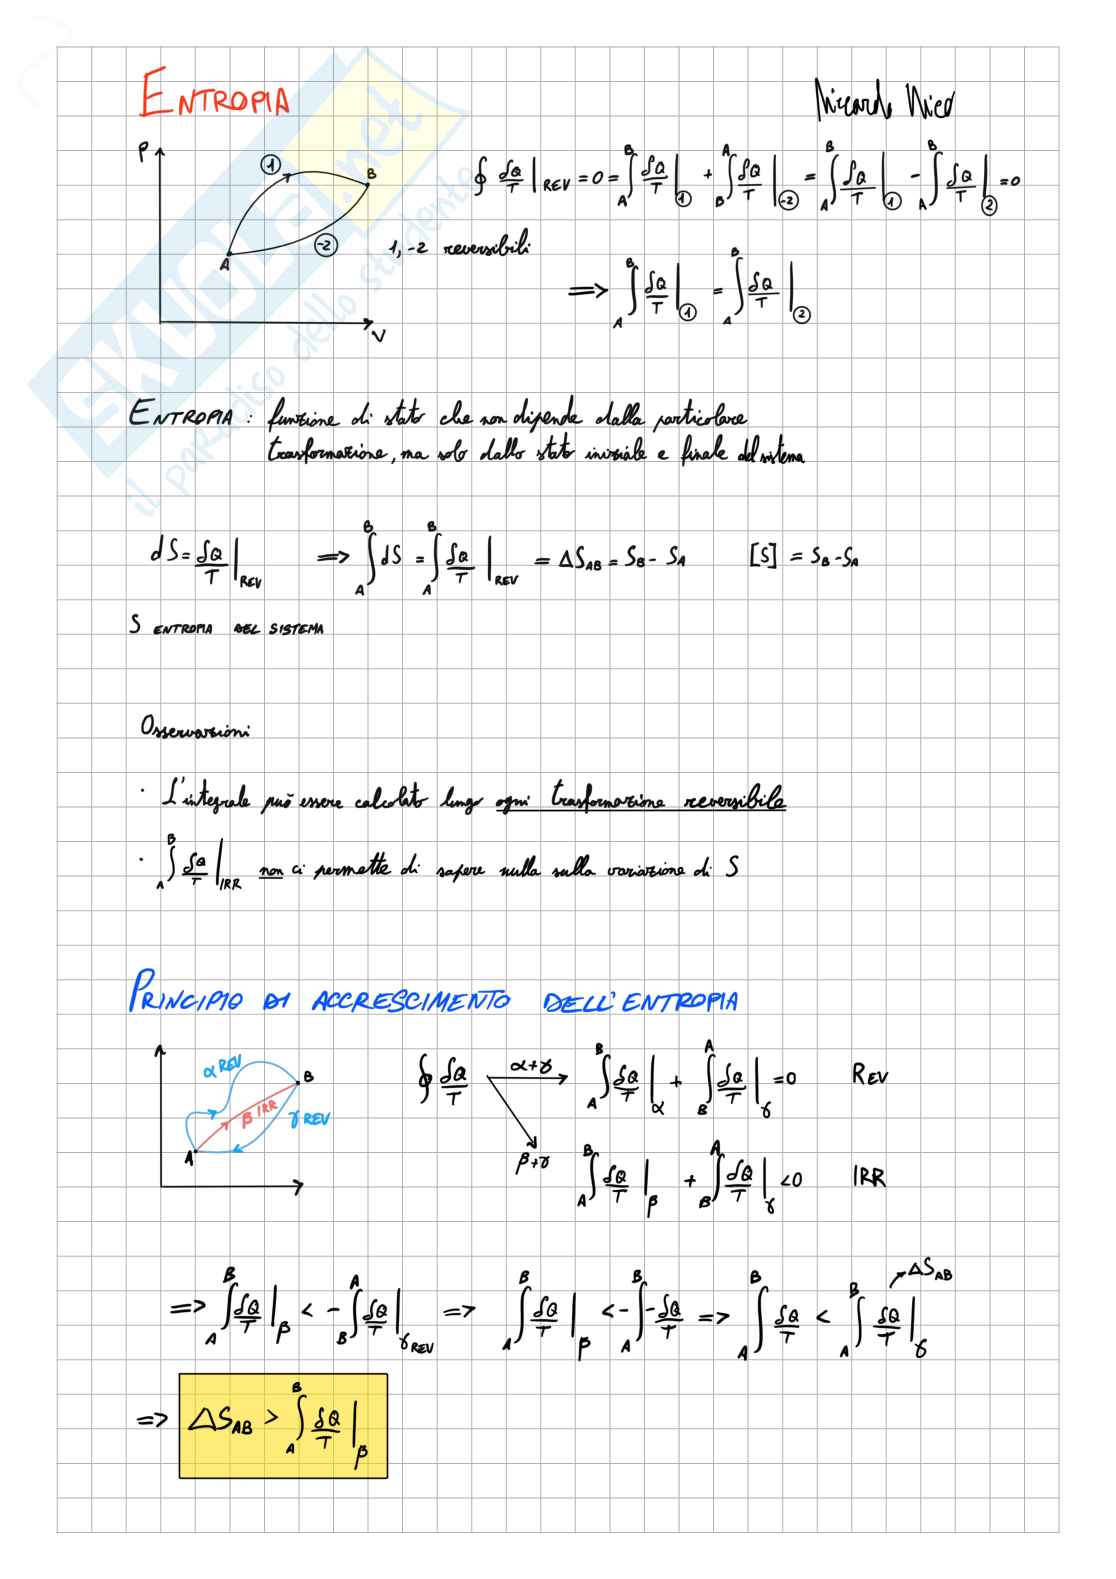 ENTROPIA
Riccardo Nico
SKUOLA.net
il paradiso dello studente
P
1
B
-2
A
V
1, -2 reversibili
∮ δQ/T |REV = 0 = ∫_A^B δQ/T |① + ∫_B^A δQ/T |-② = ∫_A^B δQ/T |① - ∫_A^B δQ/T |② = 0
=> ∫_A^B δQ/T |① = ∫_A^B δQ/T |②
ENTROPIA : funzione di stato che non dipende dalla particolare
trasformazione, ma solo dallo stato iniziale e finale del sistema
dS = δQ/T |REV => ∫_A^B dS = ∫_A^B δQ/T |REV = ΔS_AB = S_B - S_A [S] = S_B - S_A
S ENTROPIA DEL SISTEMA
Osservazioni
· L'integrale può essere calcolato lungo ogni trasformazione reversibile
· ∫_A^B δQ/T |IRR non ci permette di sapere nulla sulla variazione di S
PRINCIPIO DI ACCRESCIMENTO DELL'ENTROPIA
α REV
B
β IRR
γ REV
A
∮ δQ/T α+γ ∫_A^B δQ/T |α + ∫_B^A δQ/T |γ = 0 REV
β+γ ∫_A^B δQ/T |β + ∫_B^A δQ/T |γ < 0 IRR
=> ∫_A^B δQ/T |β < - ∫_B^A δQ/T |γ REV => ∫_A^B δQ/T |β < - ∫_A^B - δQ/T => ∫_A^B δQ/T < ∫_A^B δQ/T |γ ΔS_AB
=> ΔS_AB > ∫_A^B δQ/T |β